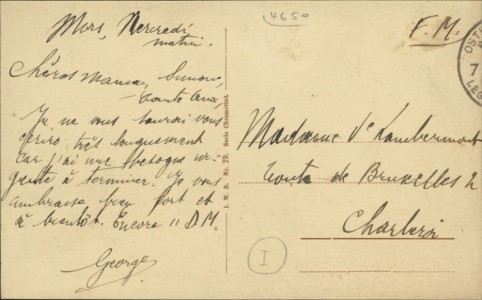 4650
F. M.
Mors, Mercredi
matin.
Chères Maman, Simone,
Je ne vous saurai vous
écrire très longuement
car j'ai une besogne ur-
gente à terminer. Je vous
embrasse bien fort et
à bientôt. Encore 11 D.M.
George
J. W. B. Nr. 29. Serie Chromotint.
Madame Vе Lambermont
Route de Bruxelles 2
Charleroi
I
7